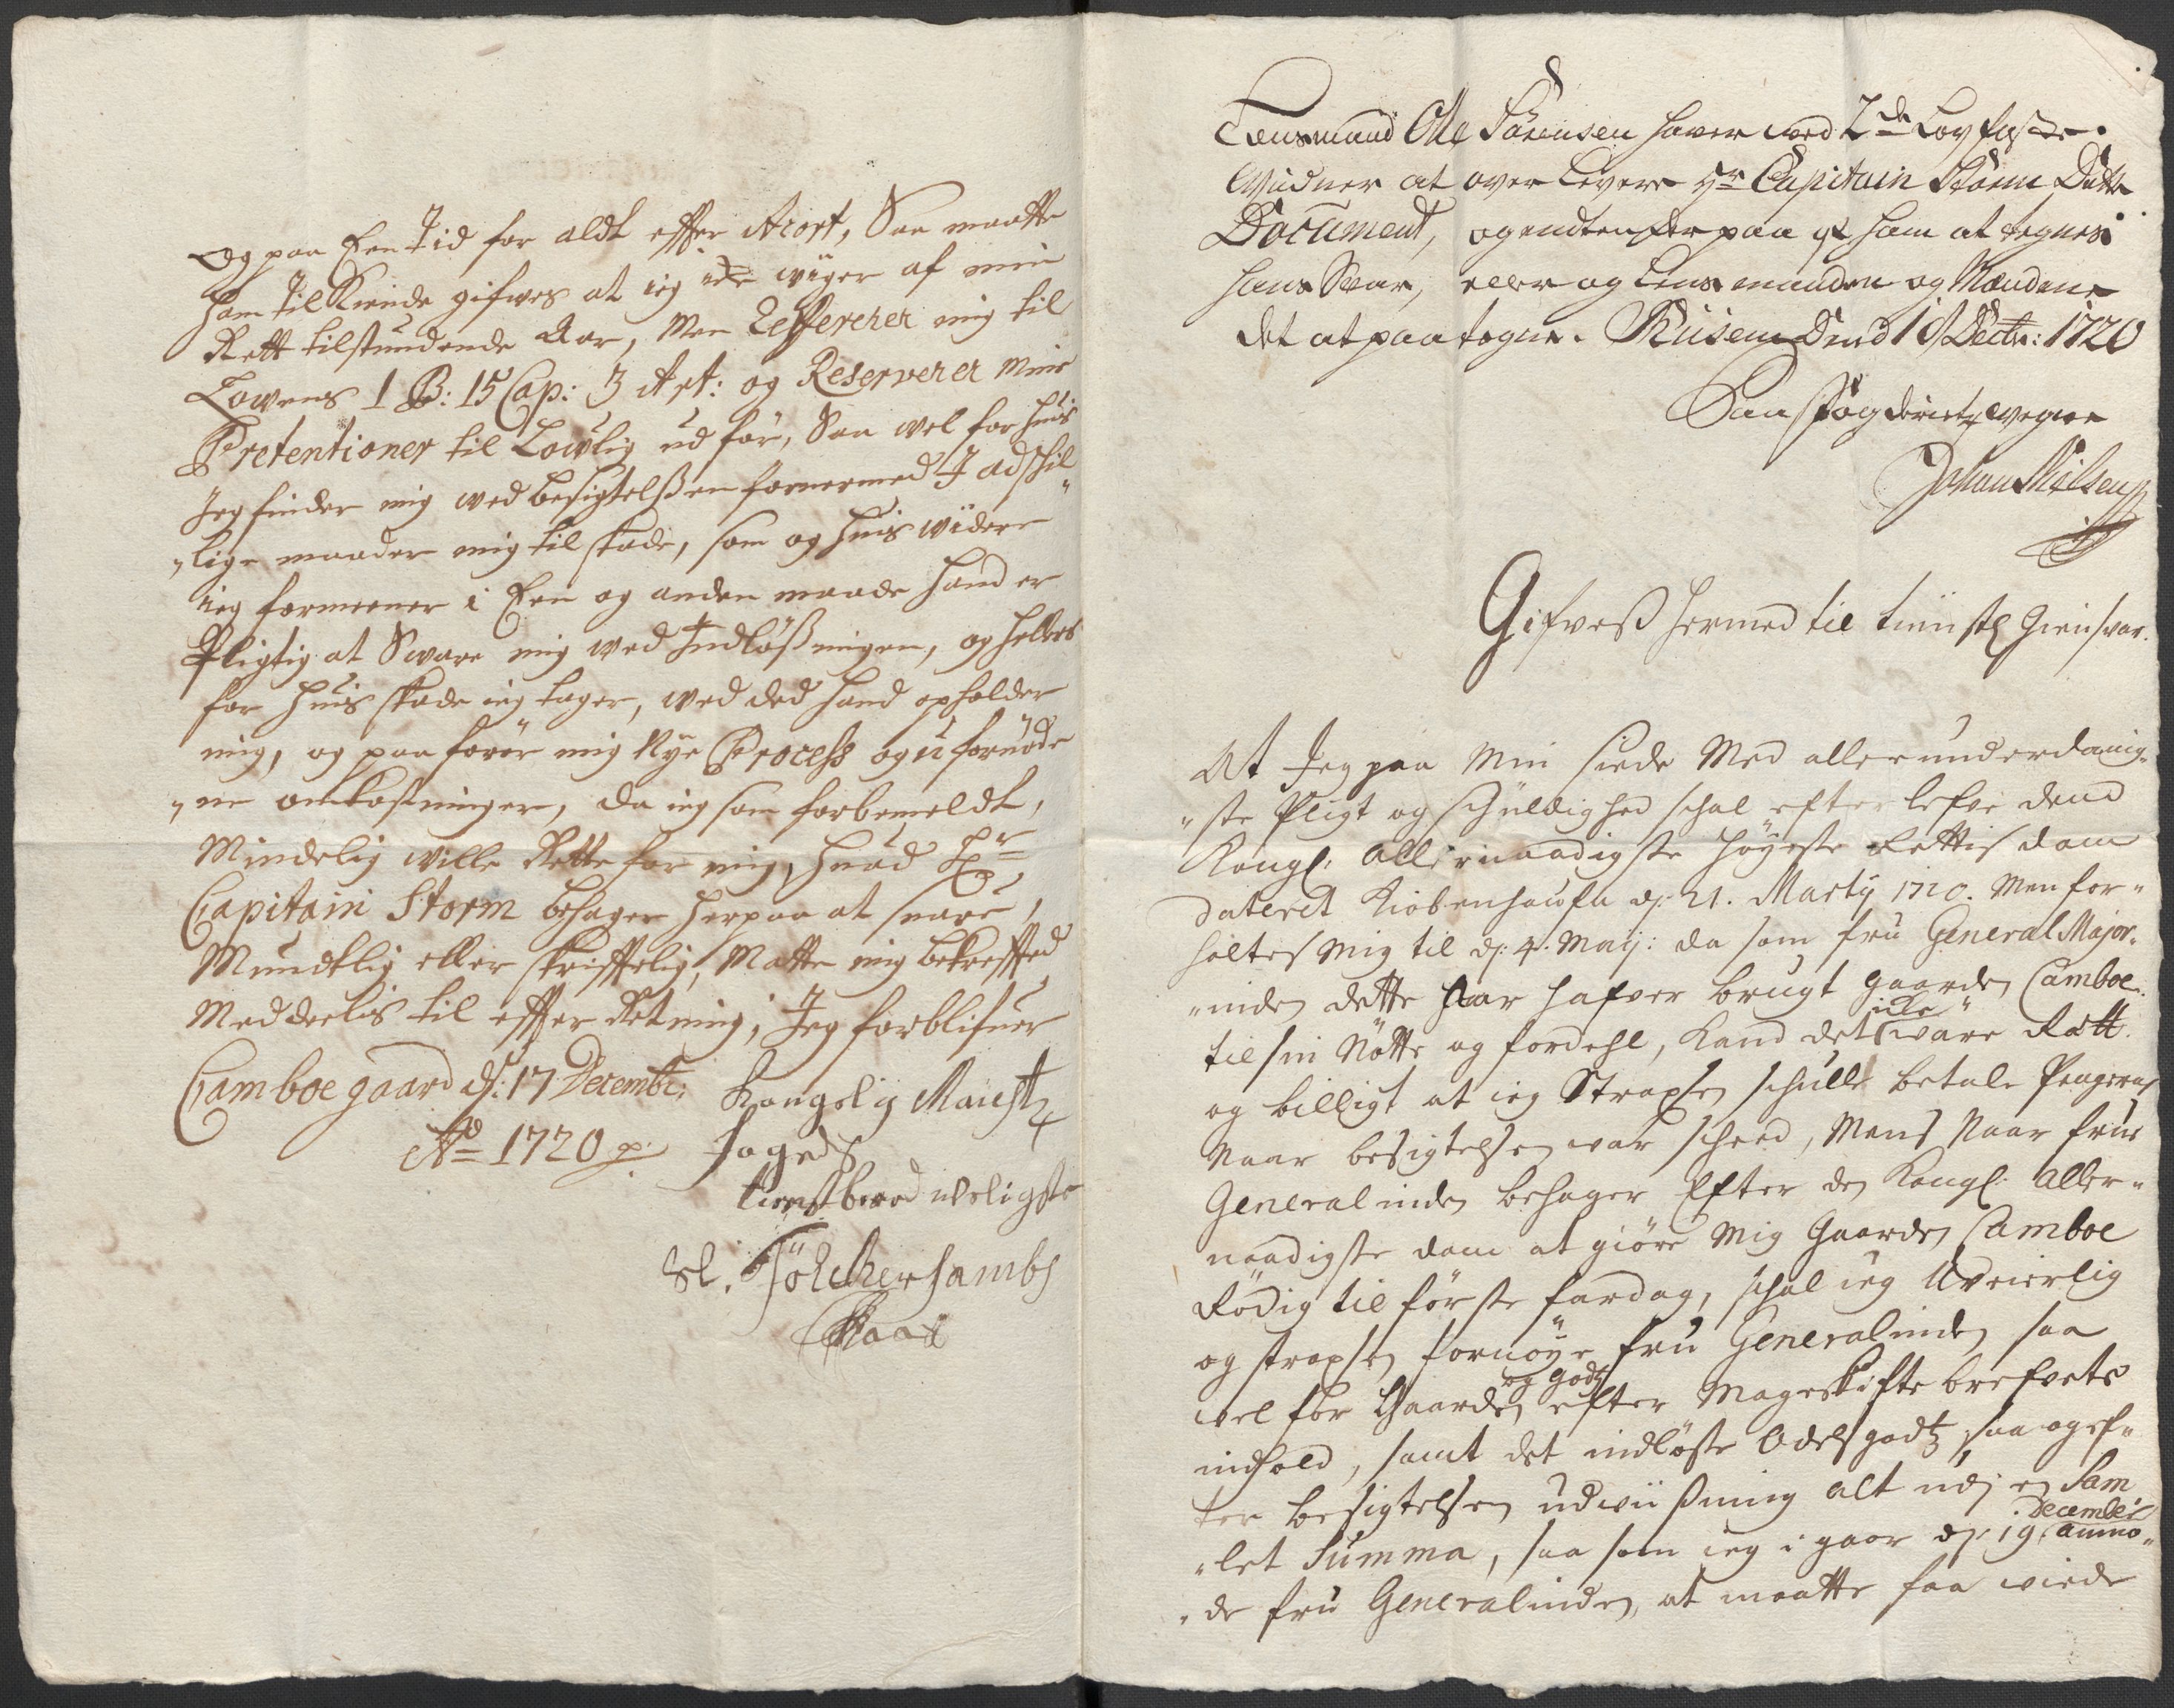 og paa Een Tid for aldt effter Acort, Saa maatte
ham tilkiende gifwes at ieg icke wiger af min
Rett tilstundende Aar, Men Refererer mig til
Lowens 1 B: 15 Cap: 3 Art: og Reserverer mine
Pretentioner til Lowlig udfør, Saa wel for huis
Jeg finder mig wed besigtelßen fornermed I adskil„
„lige maader mig til skade, som og huis widere
ieg formeener i Een og anden maade hand er
Pligtig at Sware mig wed Indløßningen, og hellers
for huis skade ieg tager, wed ded hand opholder
mig, og paaførør mig Nye Process og ufornøde
„ne omkostninger, da ieg som forbemeldt,
Mindelig wille Rette for mig, huad Hr
Capitain Storm behager herpaa at suare,
Mundtlig eller skrifftlig, Matte mig bekrefftet
Meddeelis til effterRetning; Jeg forblifuer
Camboe gaard d: 17 Decembr:
Ao 1720 p.
Kongelig Maiestz
fogeds
tienstberedweligste
Sl. Tölchersambs
Kaas
Lensmand Olle Sörensen hawer med 2de Lovfaste
Widner at over Levere Hr Capitain Storm Dette
Document, og endten derpaa af ham at tegnes
hans Svar, eller og Lensmanden og Mændene
det at paategne. Riisem Dend 18 Decbr: 1720
Paa fogderietz wegne
Johan Nilsen
Gifveß hermed til tienstl Giensvar.
At Jeg paa Min siede Med allerunderdanig„
„ste Pligt og schuldighed schal efterlefve dend
Kongl: Allernaadigste høyeste Rettis dom
dateret Kiøbenhaufn d: 21. Marty 1720. Men for„
holtes Mig til d: 4. Maij: da som fru General Major„
„inden dette Aar hafver brugt gaarden Camboe
til sin Nøtte og fordehl, kand det icke være Rætt
og billigt at ieg Strapsen schulle betale Pengerne
Naar besigtelsen var scheed, Mens Naar frue
Generalinden behager Efter den Kongl: Aller„
naadigste dom at giøre Mig Gaarden Camboe
Rødig til første fardag, schal ieg Uveierlig
og strapsen fornøye fru Generalinden saa
vel for Gaarden og godß efter Mageskifte brefvets
indhold, samt det indløste Odelsgodtz saa og ef„
ter besigtelsen udviißning alt udj en Sam
„let Summa, saa som ieg i gaar d: 19 December anmo„
„de fru Generalinden, at maatte faa viede